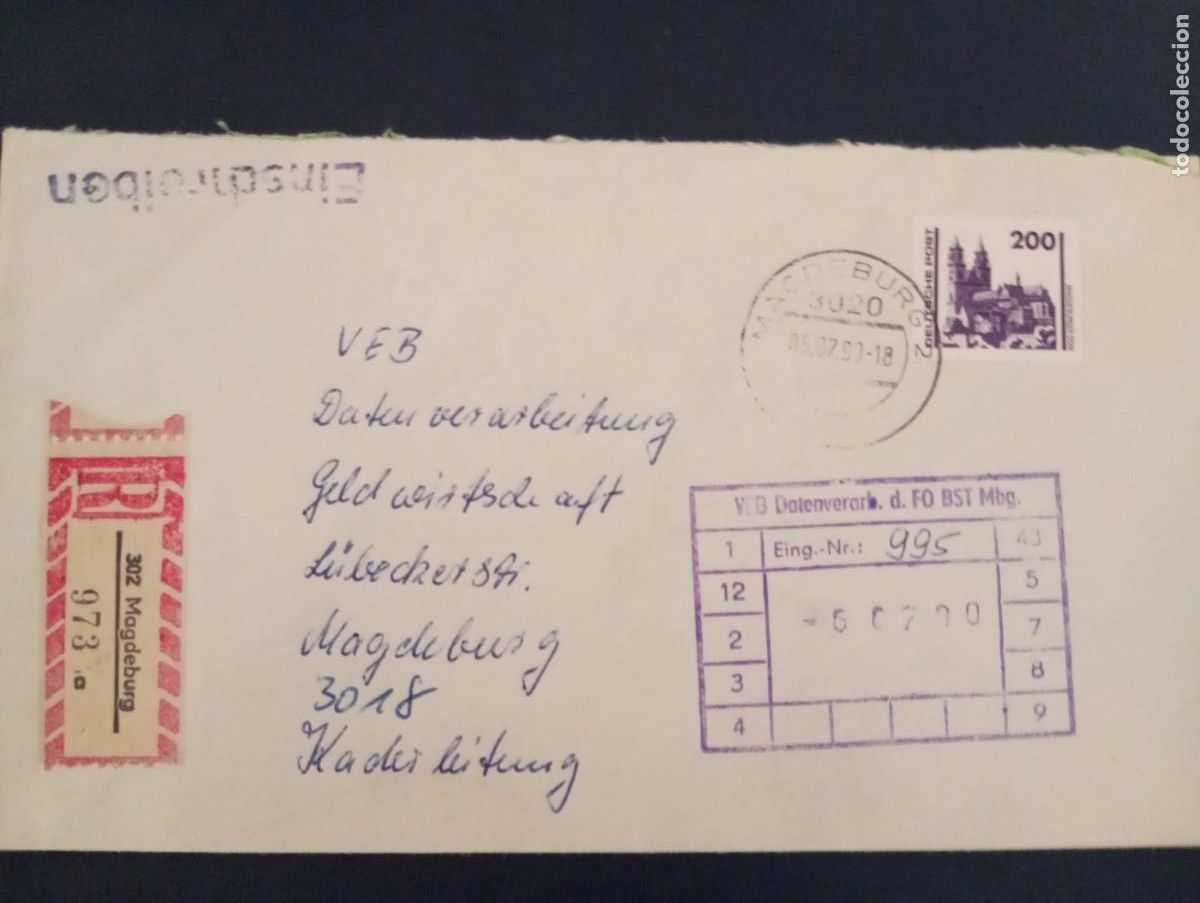 Einschreiben
200
DEUTSCHE POST
MAGDEBURG 2
3020
05.07.90-18
VEB
Datenverarbeitung
Geldwirtschaft
Lübeckerstr.
Magdeburg
3018
Kaderleitung
R
302 Magdeburg
973
VEB Datenverarb. d. FO BST Mbg.
1 Eing.-Nr.: 995 43
12 5
-6 07 90
2 7
3 8
4 9
todocoleccion